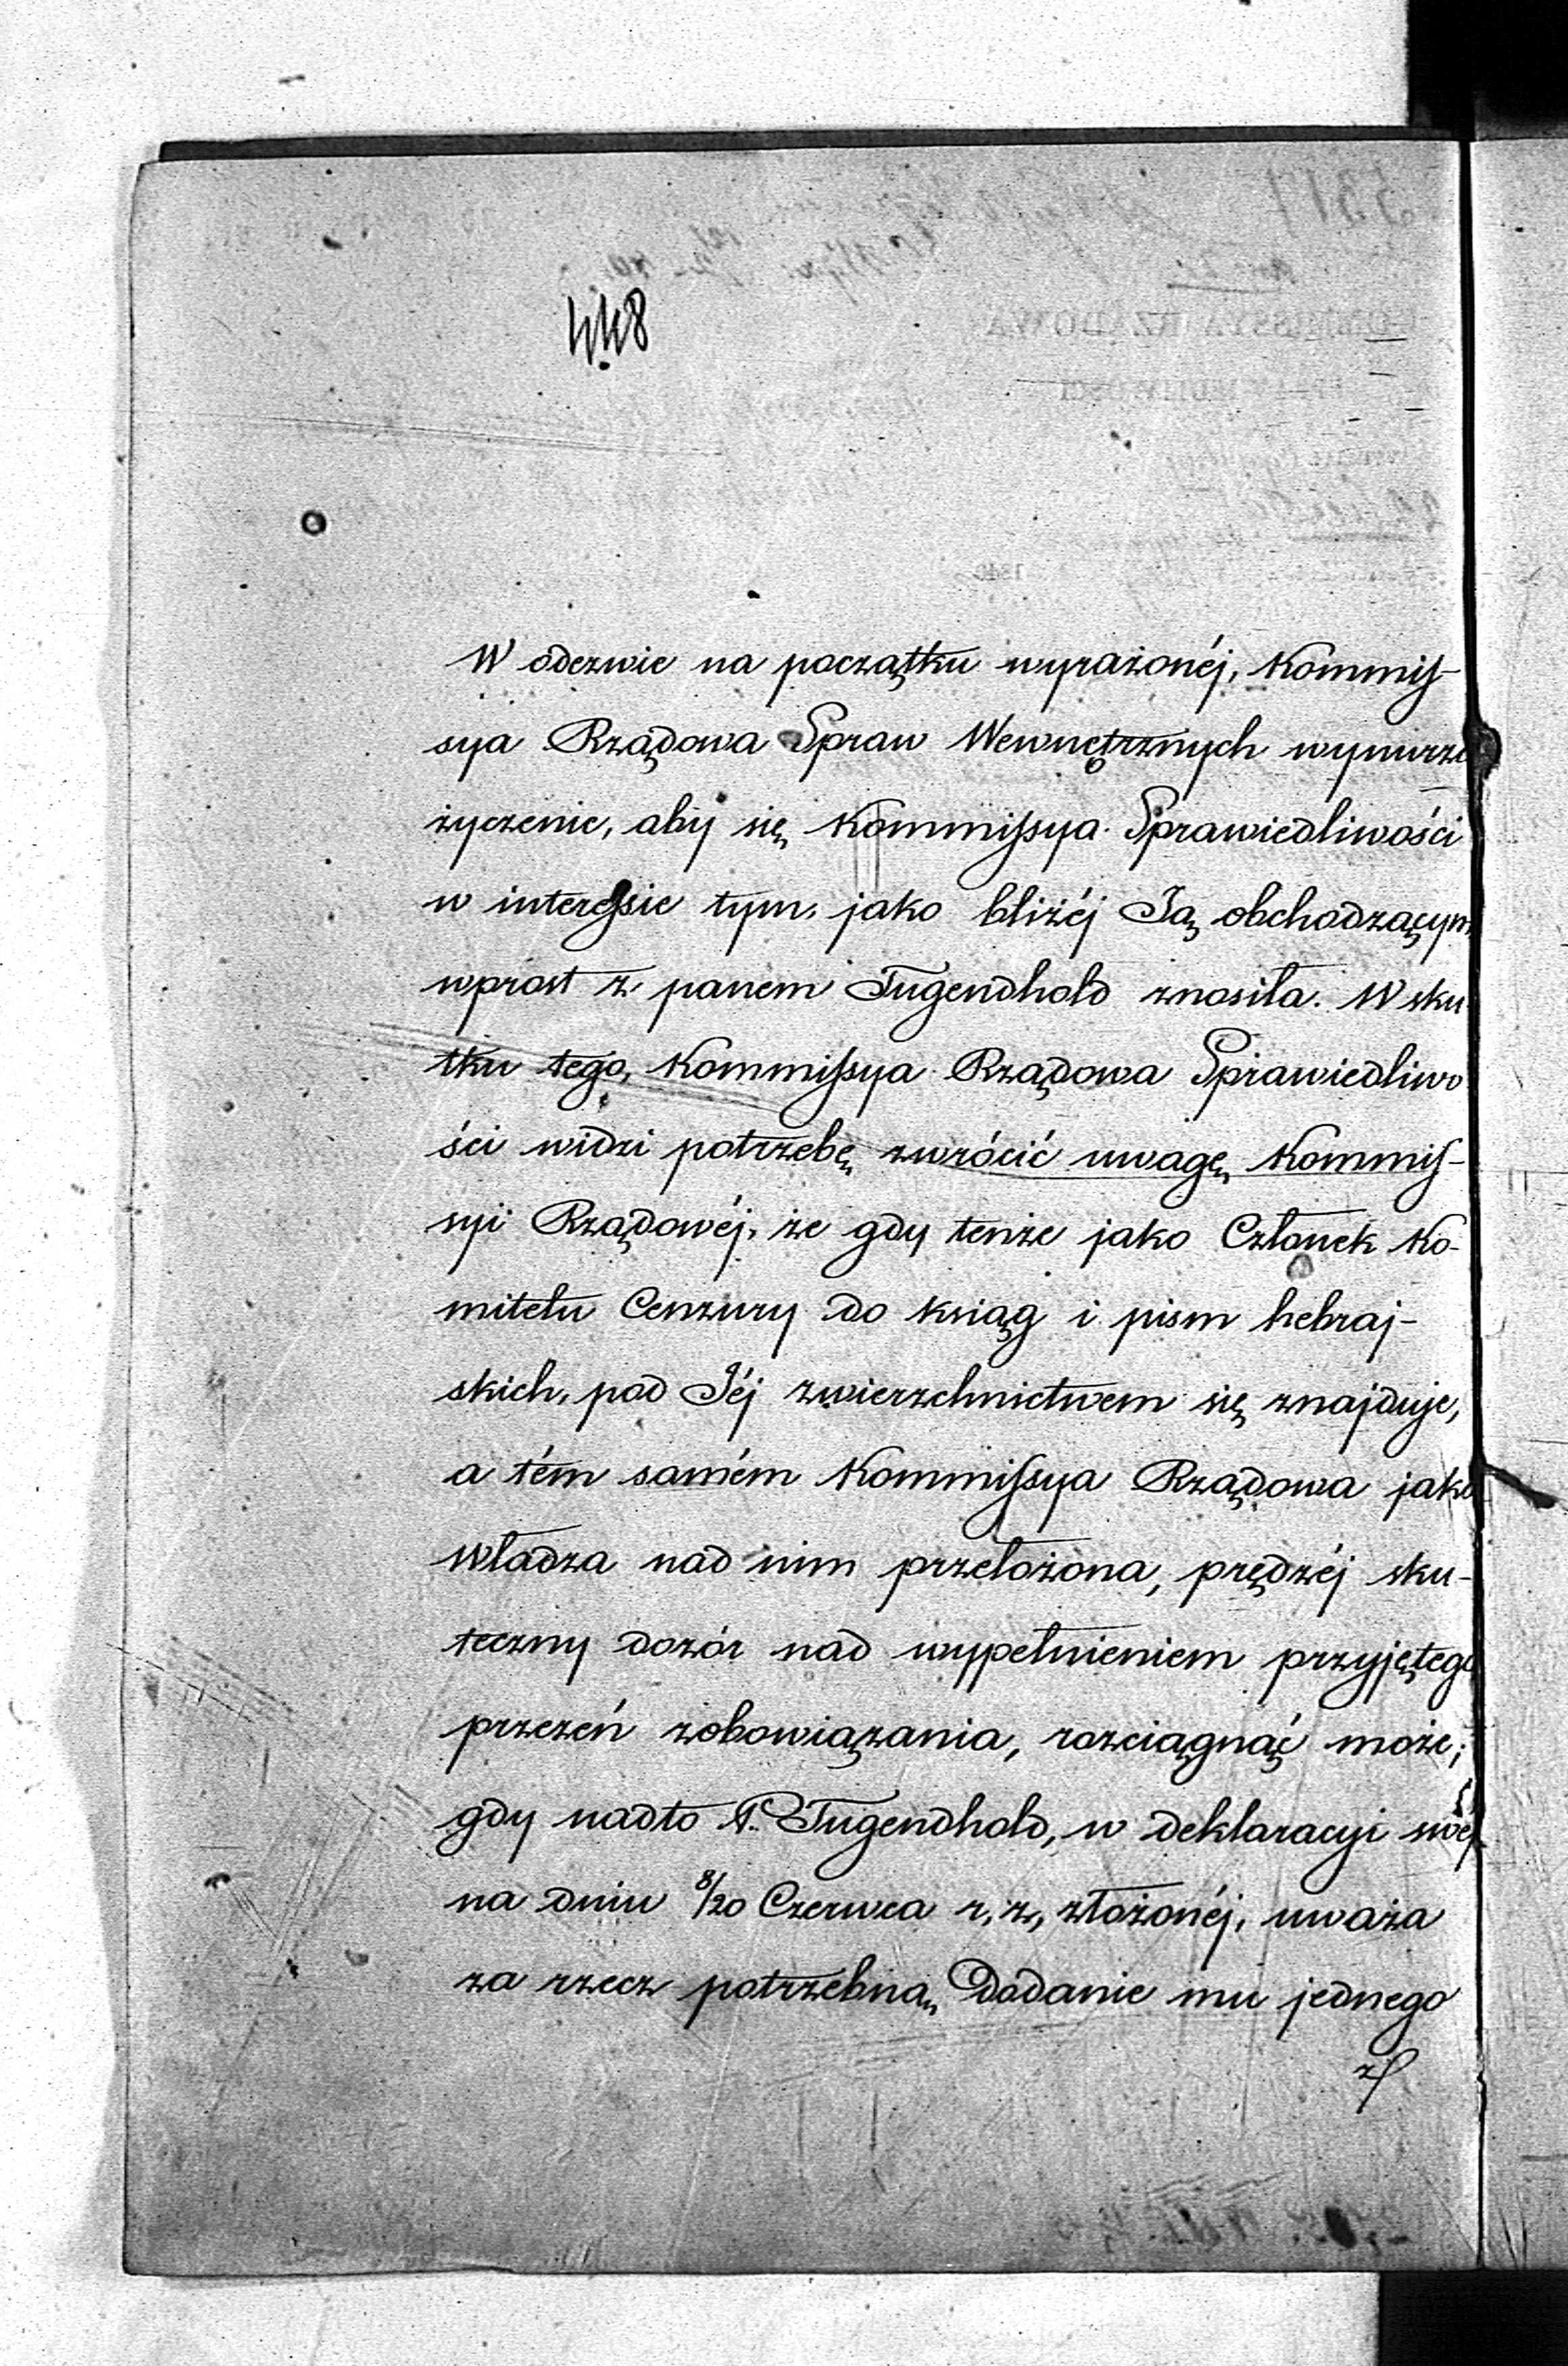 448
W odezwie na początku wyrażonéj, Kommis-
sya Rządowa Spraw Wewnętrznych wynurza
życzenie, aby się Kommissya Sprawiedliwości
w interessie tym, jako bliżéj Ją obchodzącym
wprost z panem Tugendhold znosiła. W sku
tku tego, Kommissya Rządowa Sprawiedliwo
ści widzi potrzebę zwrócić uwagę Kommis-
syi Rządowéj, że gdy tenże jako Członek Ko-
mitetu Cenzury do ksiąg i pism hebraj-
skich, pod Jéj zwierzchnictwem się znajduje,
a tém samém Kommissya Rządowa jako
Władza nad nim przełożona, prędzéj sku-
teczny dozór nad wypełnieniem przyjętego
przezeń zobowiązania, rozciągnąć może;
gdy nadto P. Tugendhold, w deklaracyi swéj
na dniu 8/20 Czerwca r, z, złożonéj, uważa
za rzecz potrzebną Dodanie mu jednego